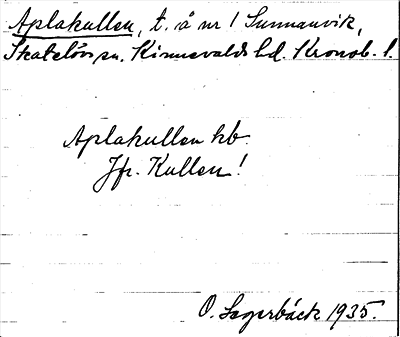 Aplakullen, t. å nr 1 Sunnanvik,
Skatelövs sn. Kinnevalds hd. Kronob. l.
Aplakullen hb.
Jfr. Kullen!
O. Lagerbäck 1935.